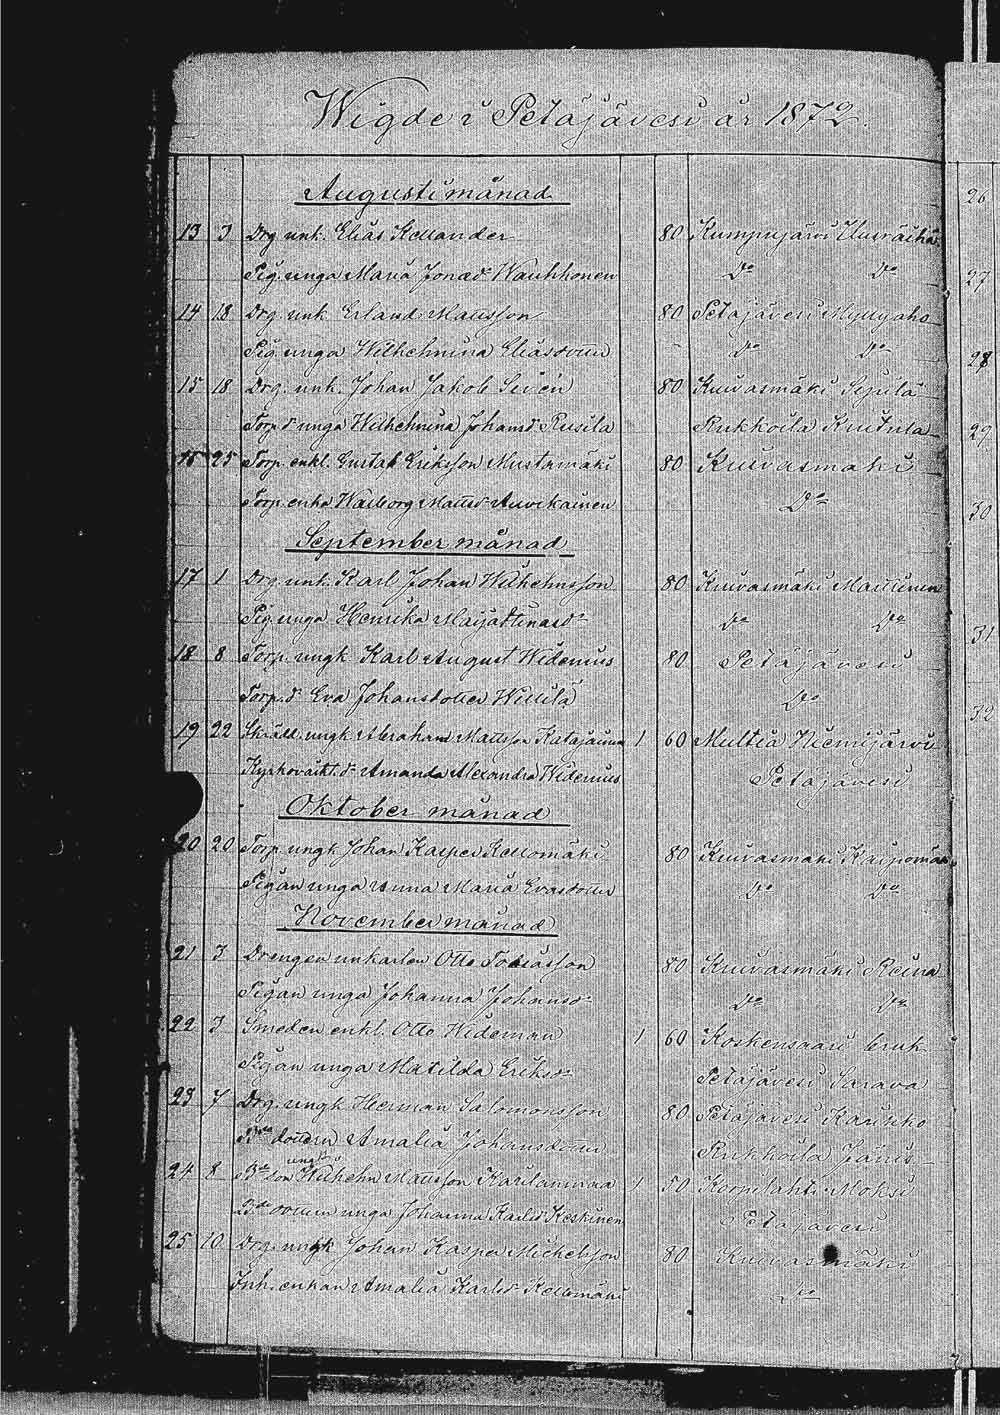 Wigde i Petäjävesi år 1872.
Augusti månad
13 3 Drg. unk. Elias Kellander 80 Kumpujärvi
Pig. unga Maria Jonæd. Wauhkonen Do Do
14 18 Drg. unk. Erland Mattsson 80 Petäjävesi Myllyaho
Pig. unga Wilhelmina Eliasdotter Do Do
15 18 Drg. unk. Johan Jakob Sevén 80 Kuivasmäki
Torp.d. unga Wilhelmina Johansd. Rusila Kuitula
25 Torp. enkl. Gustaf Eriksson Mustamäki 80 Kuivasmäki
Torp. enka Walborg Mattsd. Auvikainen Do
September månad
17 1 Drg. unk. Karl Johan Wilhelmsson 80 Kuivasmäki Marttinen
Pig. unga Henrika Do Do
18 8 Torp. ungk Karl August Widenius 80 Petäjävesi
Torp.d. Eva Johansdotter Do
19 22 Skrädd. ungk Abraham Mattsson 1 60 Multia Niemijärvi
Amanda Alexandra Widenius Petäjävesi
Oktober månad
20 20 Torp. ungk Johan Kasper Kellomäki 80 Kuivasmäki
Pigan unga Anna Maria Evasdotter Do Do
November månad
21 3 Drengen unkarlen Otto Tobiasson 80 Kuivasmäki Reina
Pigan unga Johanna Johansd. Do Do
22 3 Smeden enkl. Otto Wideman 1 60 Koskensaari bruk
Pigan unga Matilda Eriksd. Petäjävesi Sarava
23 7 Drg. ungk Herman Salomonsson 80 Petäjävesi Kaukko
Bde dottern Amalia Johansdotter
24 8 Bde son ungk Wilhelm Mattsson 1 50 Korpilahti Moksi
Bde dotter unga Johanna Karlsd. Keskinen Petäjävesi
25 10 Drg. ungk Johan Kasper Mickelsson 80 Kuivasmäki
Inh. enkan Amalia Karlsd. Kellomäki Do
26
27
28
29
30
31
32